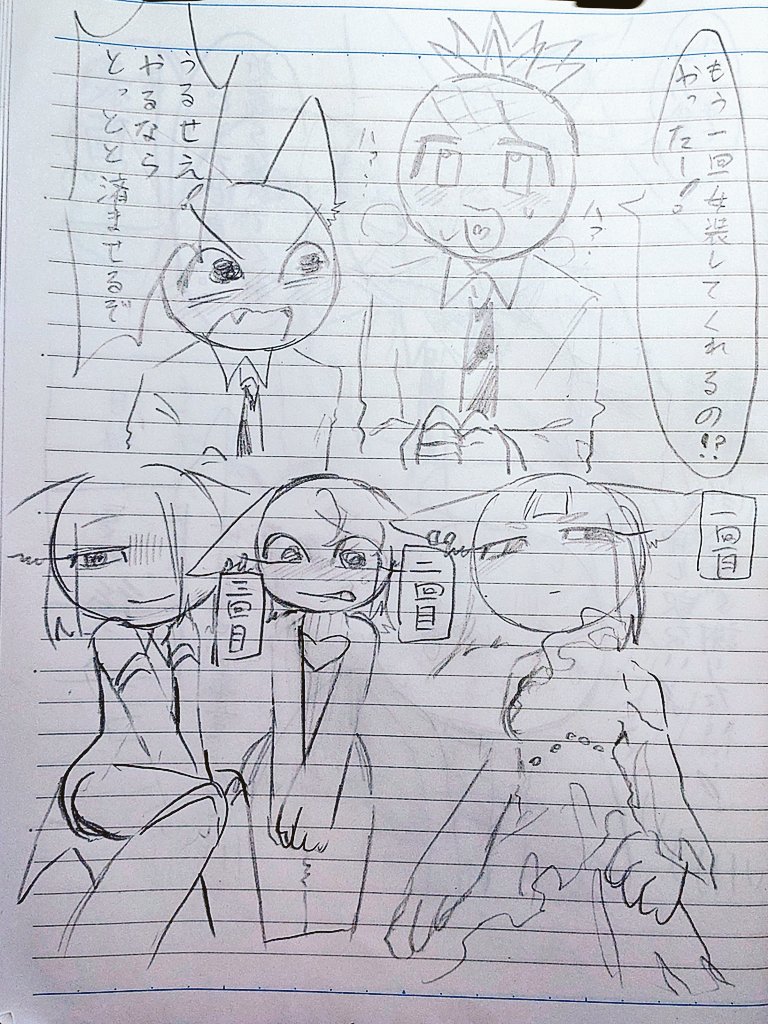 もう一回女装してくれるの!?
やったー!
ハァ…
ハァ?
うるせえ!
やるなら
とっとと済ませるぞ
一回目
二回目
三回目